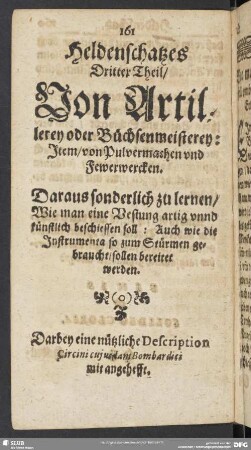 161
Heldenschatzes
Dritter Theil/
Von Artil-
lerey oder Büchsenmeisterey:
Item/von Pulvermachen vnd
Fewerwercken.
Daraus sonderlich zu lernen/
Wie man eine Vestung artig vnnd
künstlich beschiessen soll: Auch wie die
Instrumenta so zum Stürmen ge-
braucht/sollen bereitet
werden.
Darbey eine nützliche Description
Circini cujusdam Bombardici
mit angehefft.
SLUB